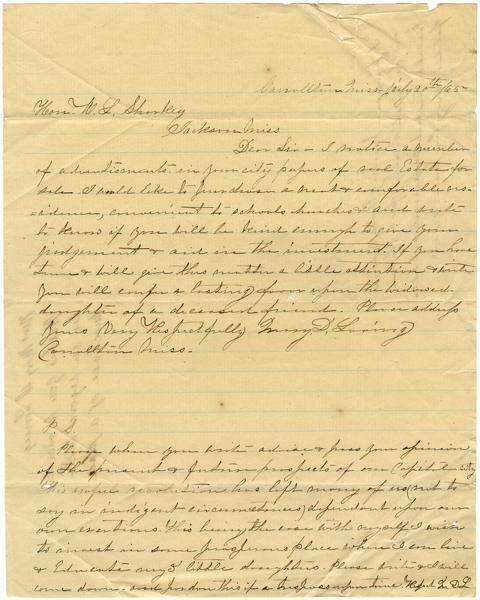 Carrollton Miss July 20th /65
Hon. W. L. Sharkey
Jackson Miss
Dear Sir - I notice a number
of advertisments in your city papers of real Estate for
sale. I would like to purchase a neat & comfortable res-
idence, convenient to schools churches & and write
to know if you will be kind enough to give your
judgement & aid in the investment. If you have
time & will give this matter a little attention & write
you will confer a lasting favor upon the widowed
daughter of a deceased friend. Please address
Yours Very Respectfully Mary D. Loving
Carrollton Miss.
P. S.
Please when you write advise & pass your opinion
of the present & future prospects of our Capitol city
This revolution has left many of us (not to
say in indigent circumstances) dependent upon our
own exertions. This being the case with myself I wish
to invest in some prosperous place where I can live
& Educate my 3 little daughters. Please write & I will
come down and pardon this if a trespass upon time.